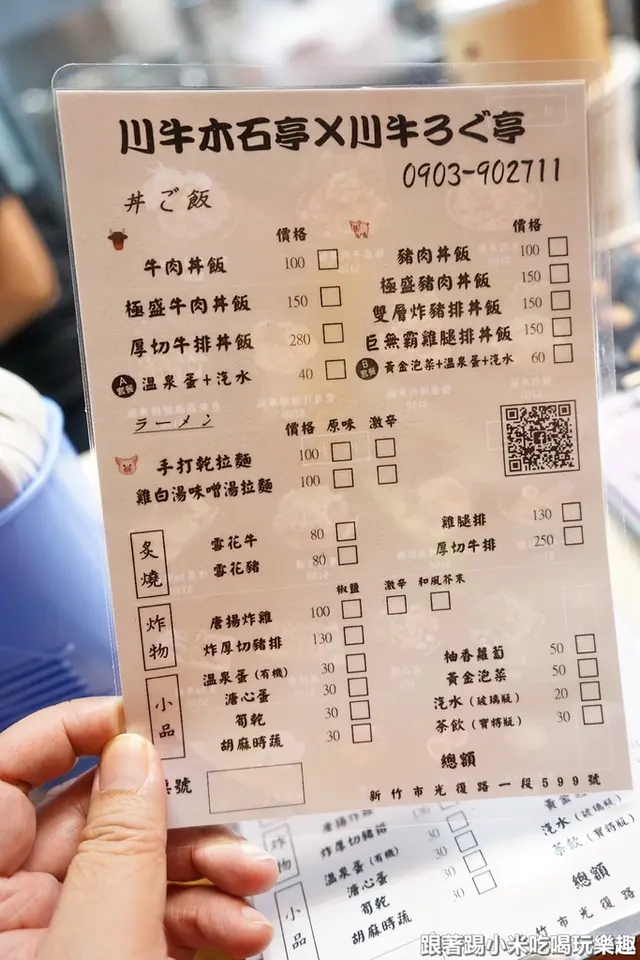 川牛木石亭X川牛ろぐ亭
0903-902711
丼ご飯
價格
牛肉丼飯 100
極盛牛肉丼飯 150
厚切牛排丼飯 280
A套餐 溫泉蛋+汽水 40
價格
豬肉丼飯 100
極盛豬肉丼飯 150
雙層炸豬排丼飯 150
巨無霸雞腿排丼飯 150
B套餐 黃金泡菜+溫泉蛋+汽水 60
ラーメン
價格 原味 激辛
手打乾拉麵 100
雞白湯味噌湯拉麵 100
炙燒
雪花牛 80
雪花豬 80
雞腿排 130
厚切牛排 250
炸物
椒鹽 激辛 和風芥末
唐揚炸雞 100
炸厚切豬排 130
小品
溫泉蛋(有機) 30
溏心蛋 30
筍乾 30
胡麻時蔬 30
柚香蘿蔔 50
黃金泡菜 50
汽水(玻璃瓶) 20
茶飲(寶特瓶) 30
總額
號
新竹市光復路一段599號
炸物
炸厚切豬排
溫泉蛋(有機) 30
小品
溏心蛋 30
筍乾 30
胡麻時蔬 30
汽水(玻璃瓶)
茶飲(寶特瓶)
總額
竹市光復路
跟著踢小米吃喝玩樂趣